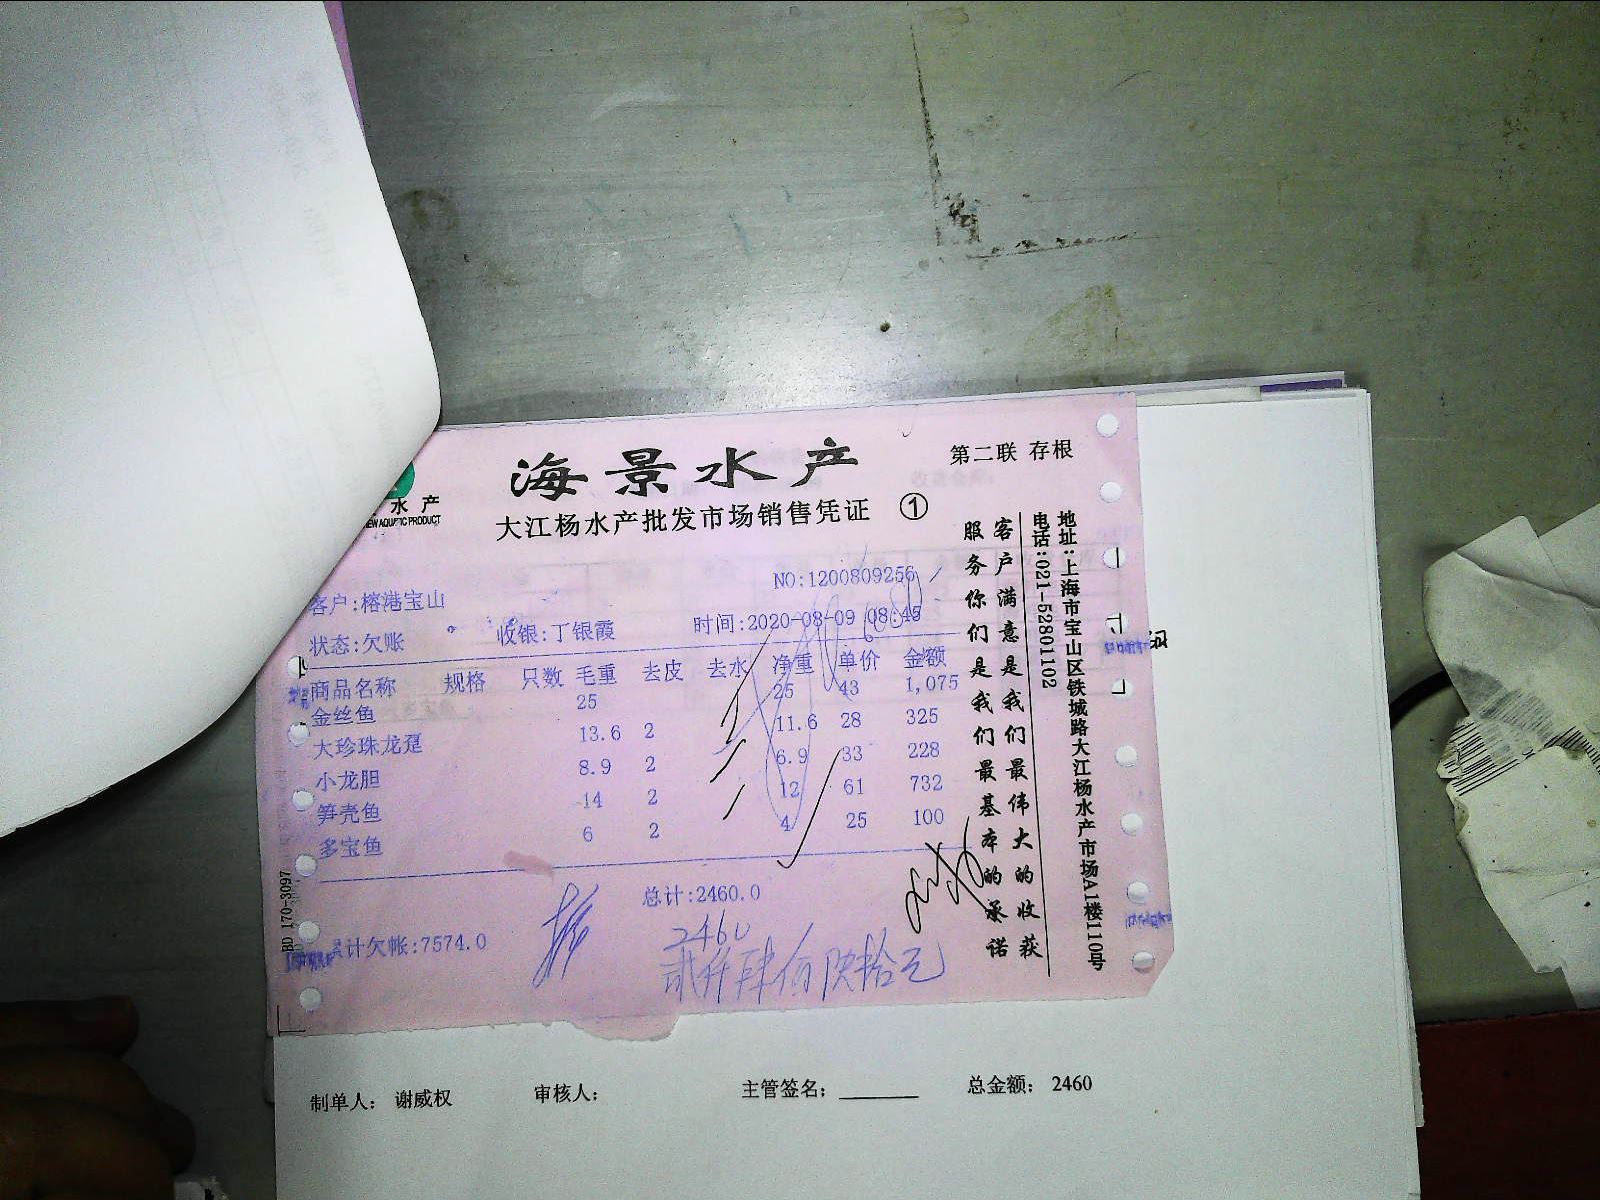 海景水产
第二联 存根
水产
EW AQUATIC PRODUCT
大江杨水产批发市场销售凭证 ①
NO:1200809256
客户:榕港宝山
状态:欠账 收银:丁银霞 时间:2020-08-09 08:45
商品名称 规格 只数 毛重 去皮 去水 净重 单价 金额
金丝鱼 25 25 43 1,075
大珍珠龙趸 13.6 2 11.6 28 325
小龙胆 8.9 2 6.9 33 228
笋壳鱼 14 2 12 61 732
多宝鱼 6 2 4 25 100
总计:2460.0
计欠帐:7574.0
2460
贰仟肆佰陆拾元
客户满意是我们最伟大的收获
服务你们是我们最基本的承诺
地址:上海市宝山区铁城路大江杨水产市场A1楼110号
电话:021-52801102
BD 170-3097
制单人: 谢威权 审核人: 主管签名: 总金额: 2460